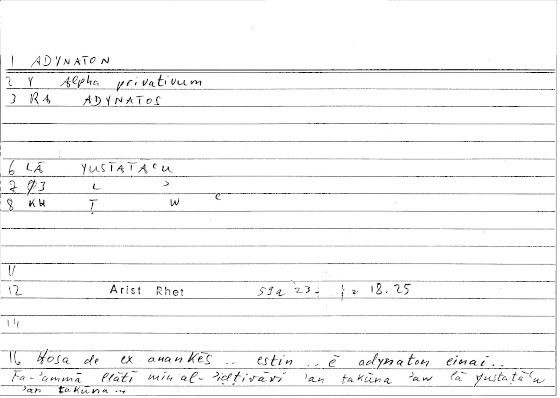 1 ADYNATON
2 Y Alpha privativum
3 RA ADYNATOS
6 LĀ YUSTAṬĀʿU
7 Ø3 L ʾ
8 KH Ṭ W ʿ
11
12 Arist Rhet 59a 23 = 18.25
14
16 Hosa de ex anankēs .. estin .. ē adynaton einai..
Fa-ʾammā llātī min al- ʾan takūna ʾaw lā yustaṭāʿu
ʾan takūna ..